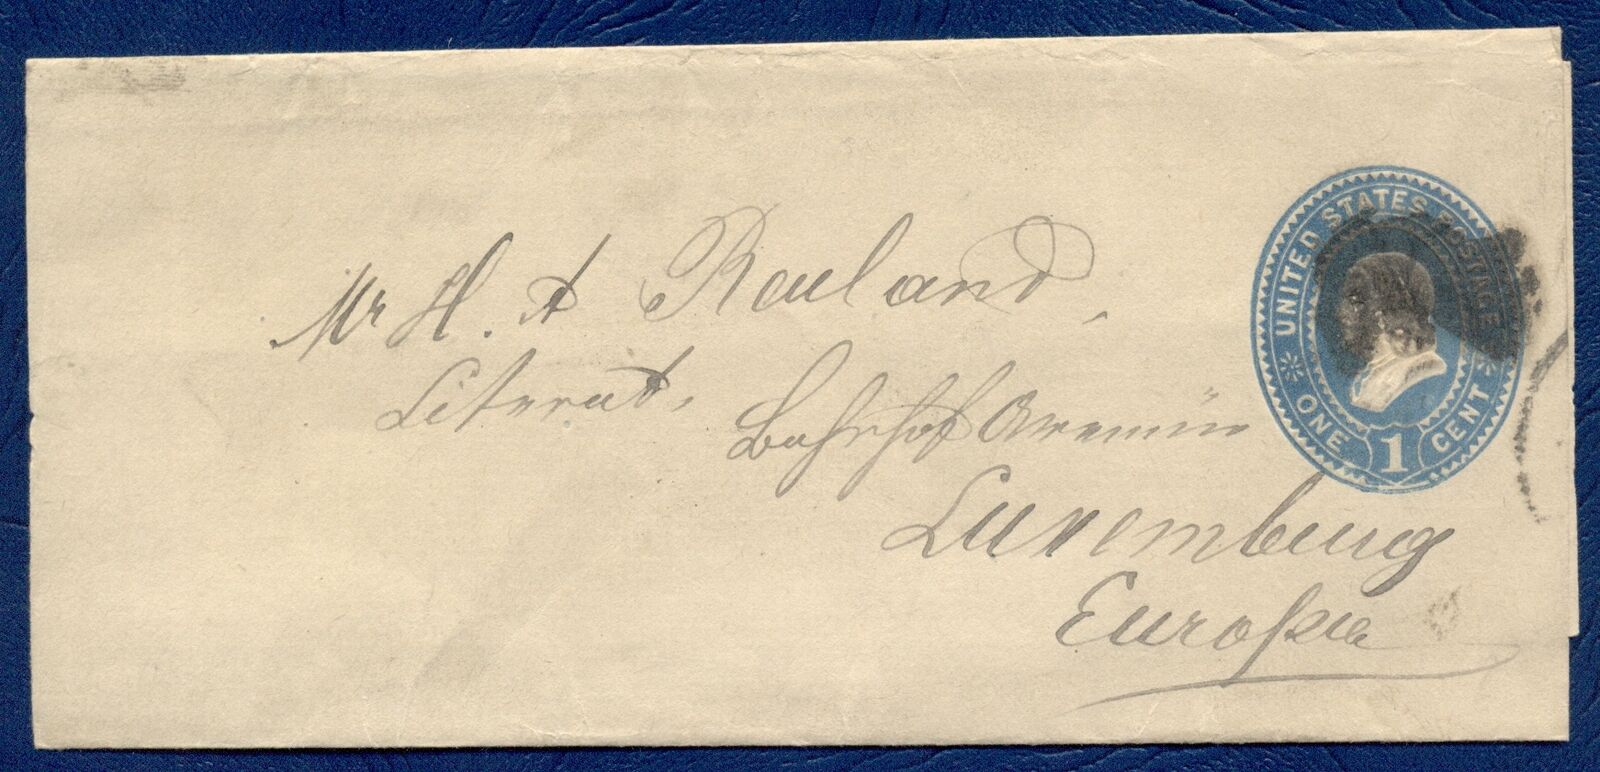 UNITED STATES POSTAGE
ONE 1 CENT
Mr H. A Reuland,
Literat, Bahnhof Avenüe
Luxemburg
Europa